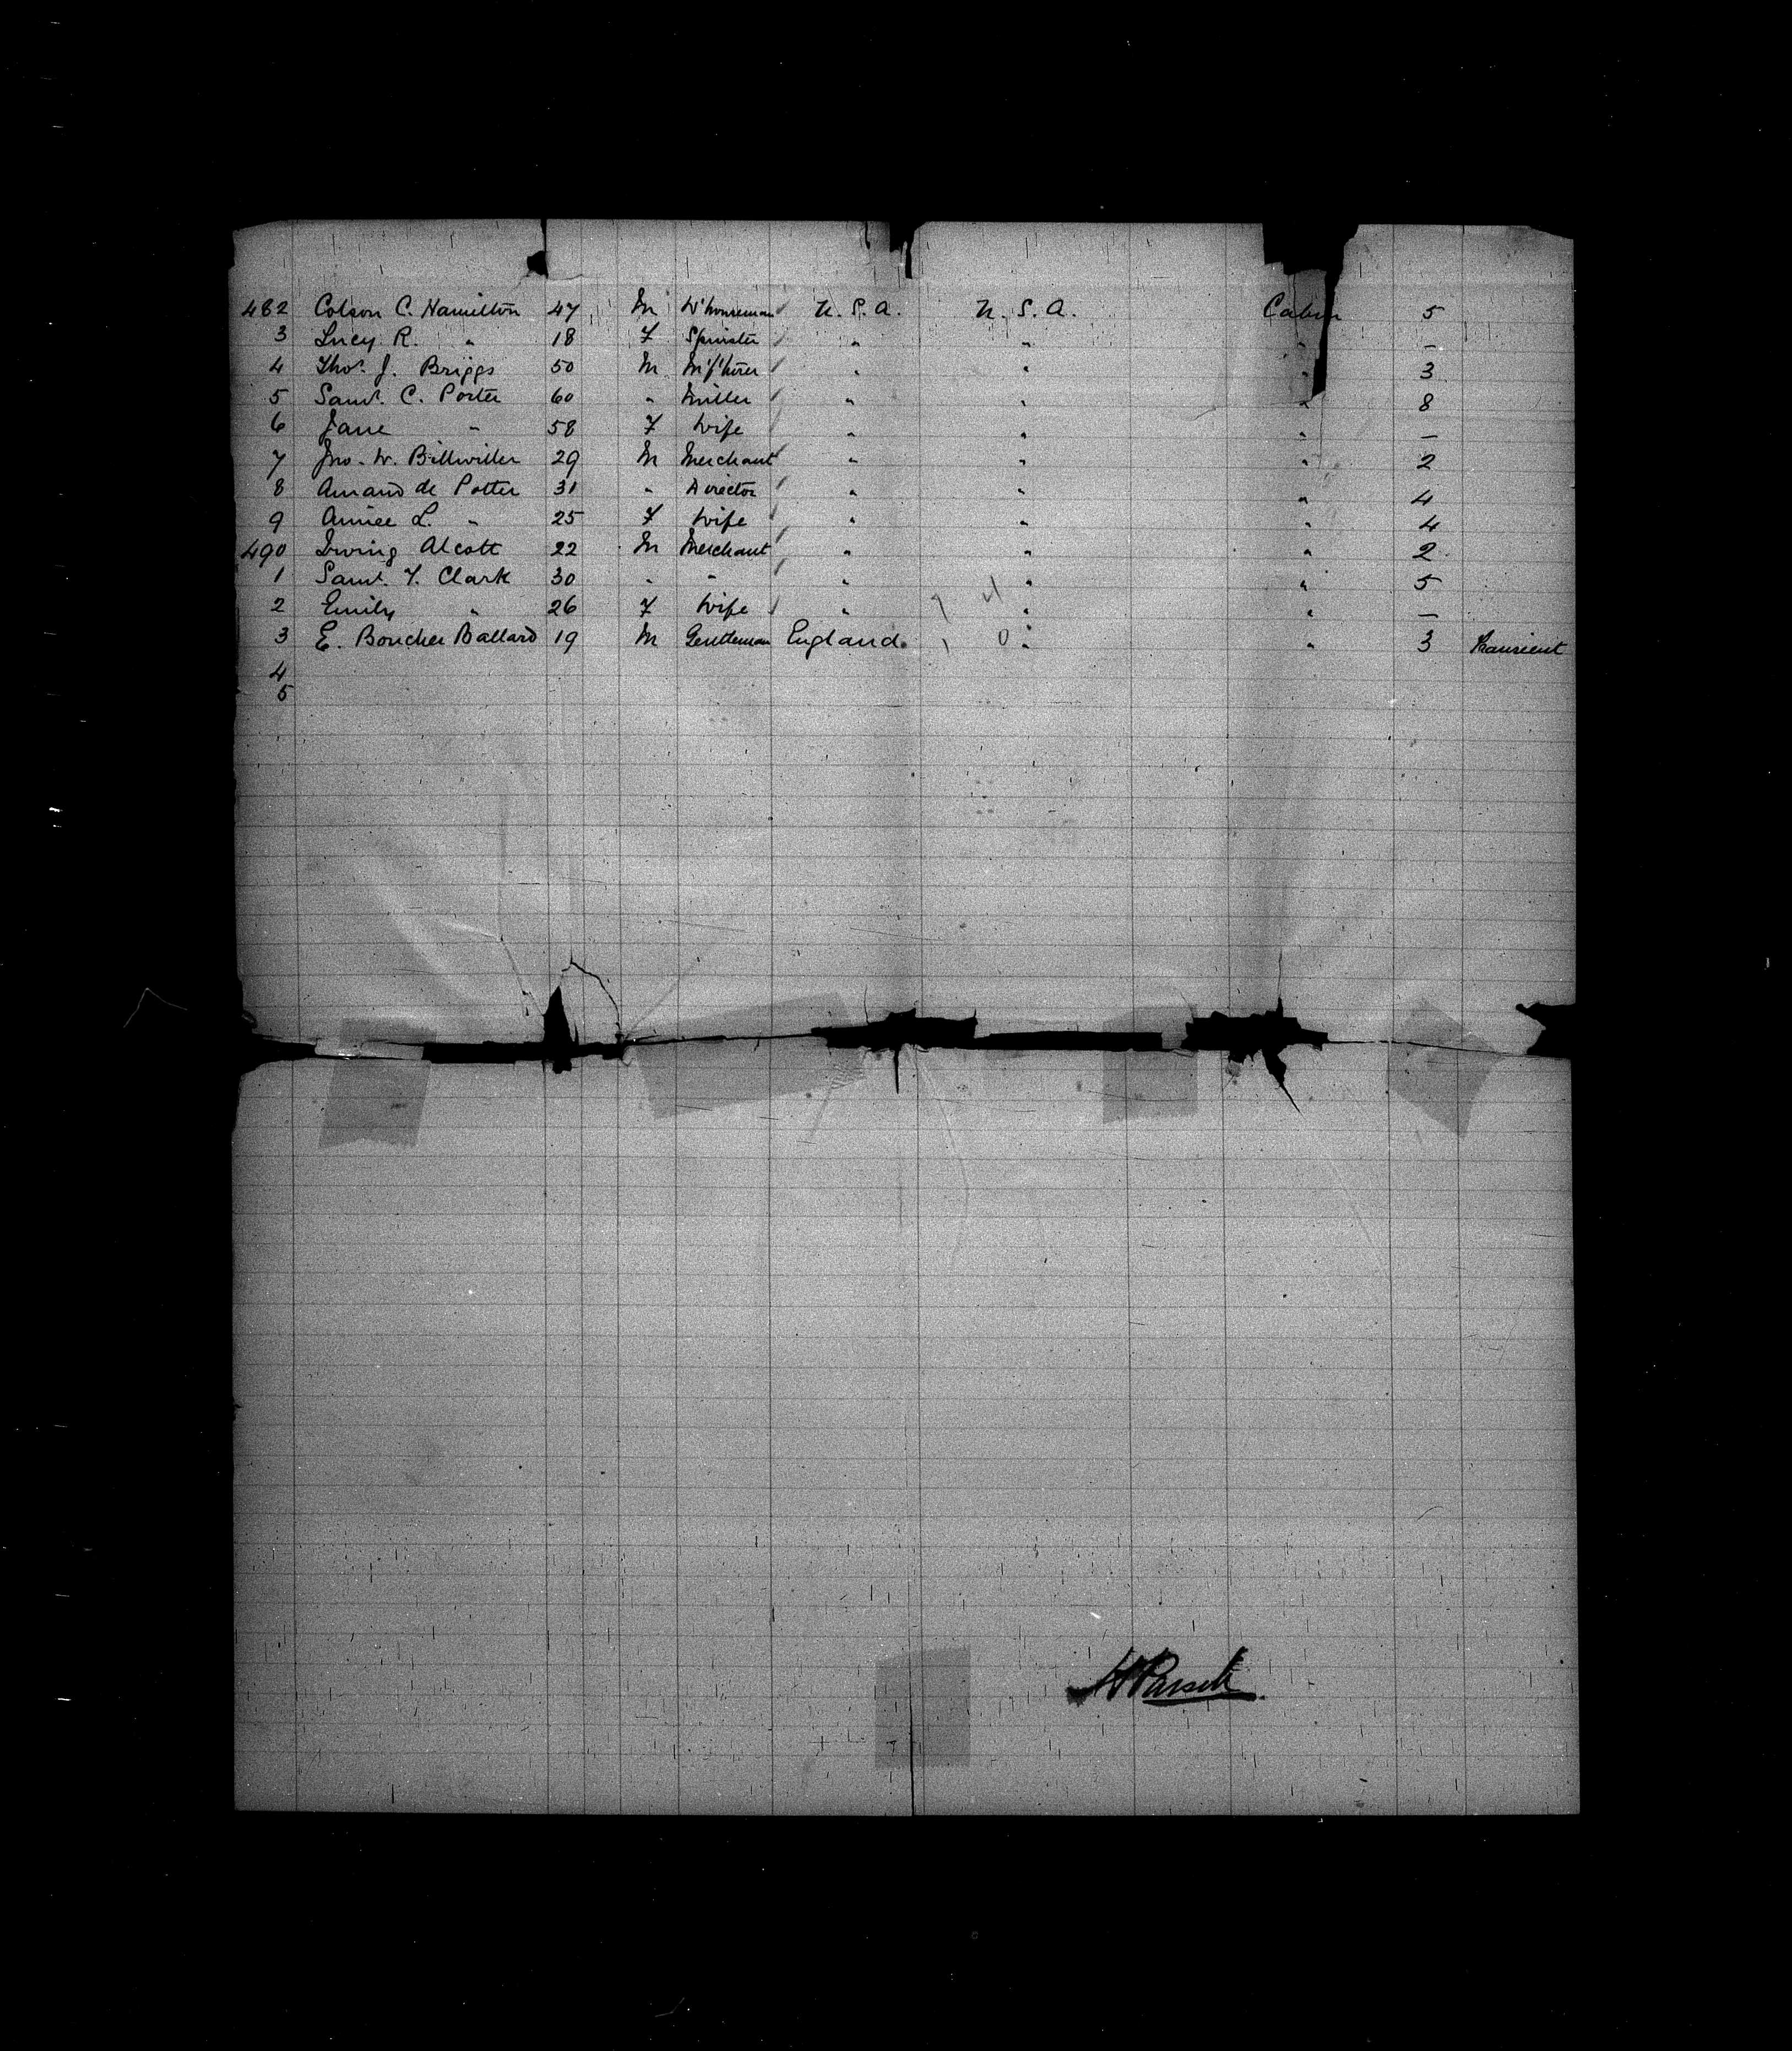 482 Colson C. Hamilton 47 M W'houseman U.S.A. U.S.A. Cabin 5
3 Lucy R. " 18 F Spinster " " " –
4 Thos. J. Briggs 50 M M'f'turer " " " 3
5 Saml. C. Porter 60 " Miller " " " 8
6 Jane " 58 F Wife " " " –
7 Jno. W. Billwiller 29 M Merchant " " " 2
8 Amand de Potter 31 " Director " " " 4
9 Aimee L. " 25 F Wife " " " 4
490 Irving Alcott 22 M Merchant " " " 2
1 Saml. T. Clark 30 " " " " " 5
2 Emily " 26 F Wife " " " –
3 E. Boucher Ballard 19 M Gentleman England " " 3 Transient
4
5